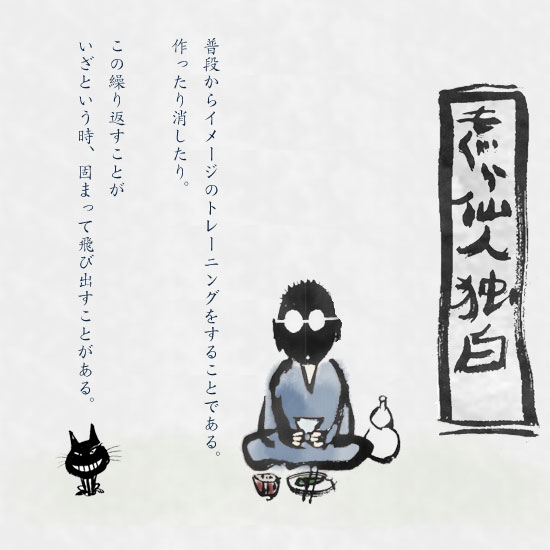 仙人独白
普段からイメージのトレーニングをすることである。
作ったり消したり。
この繰り返すことが
いざという時、固まって飛び出すことがある。